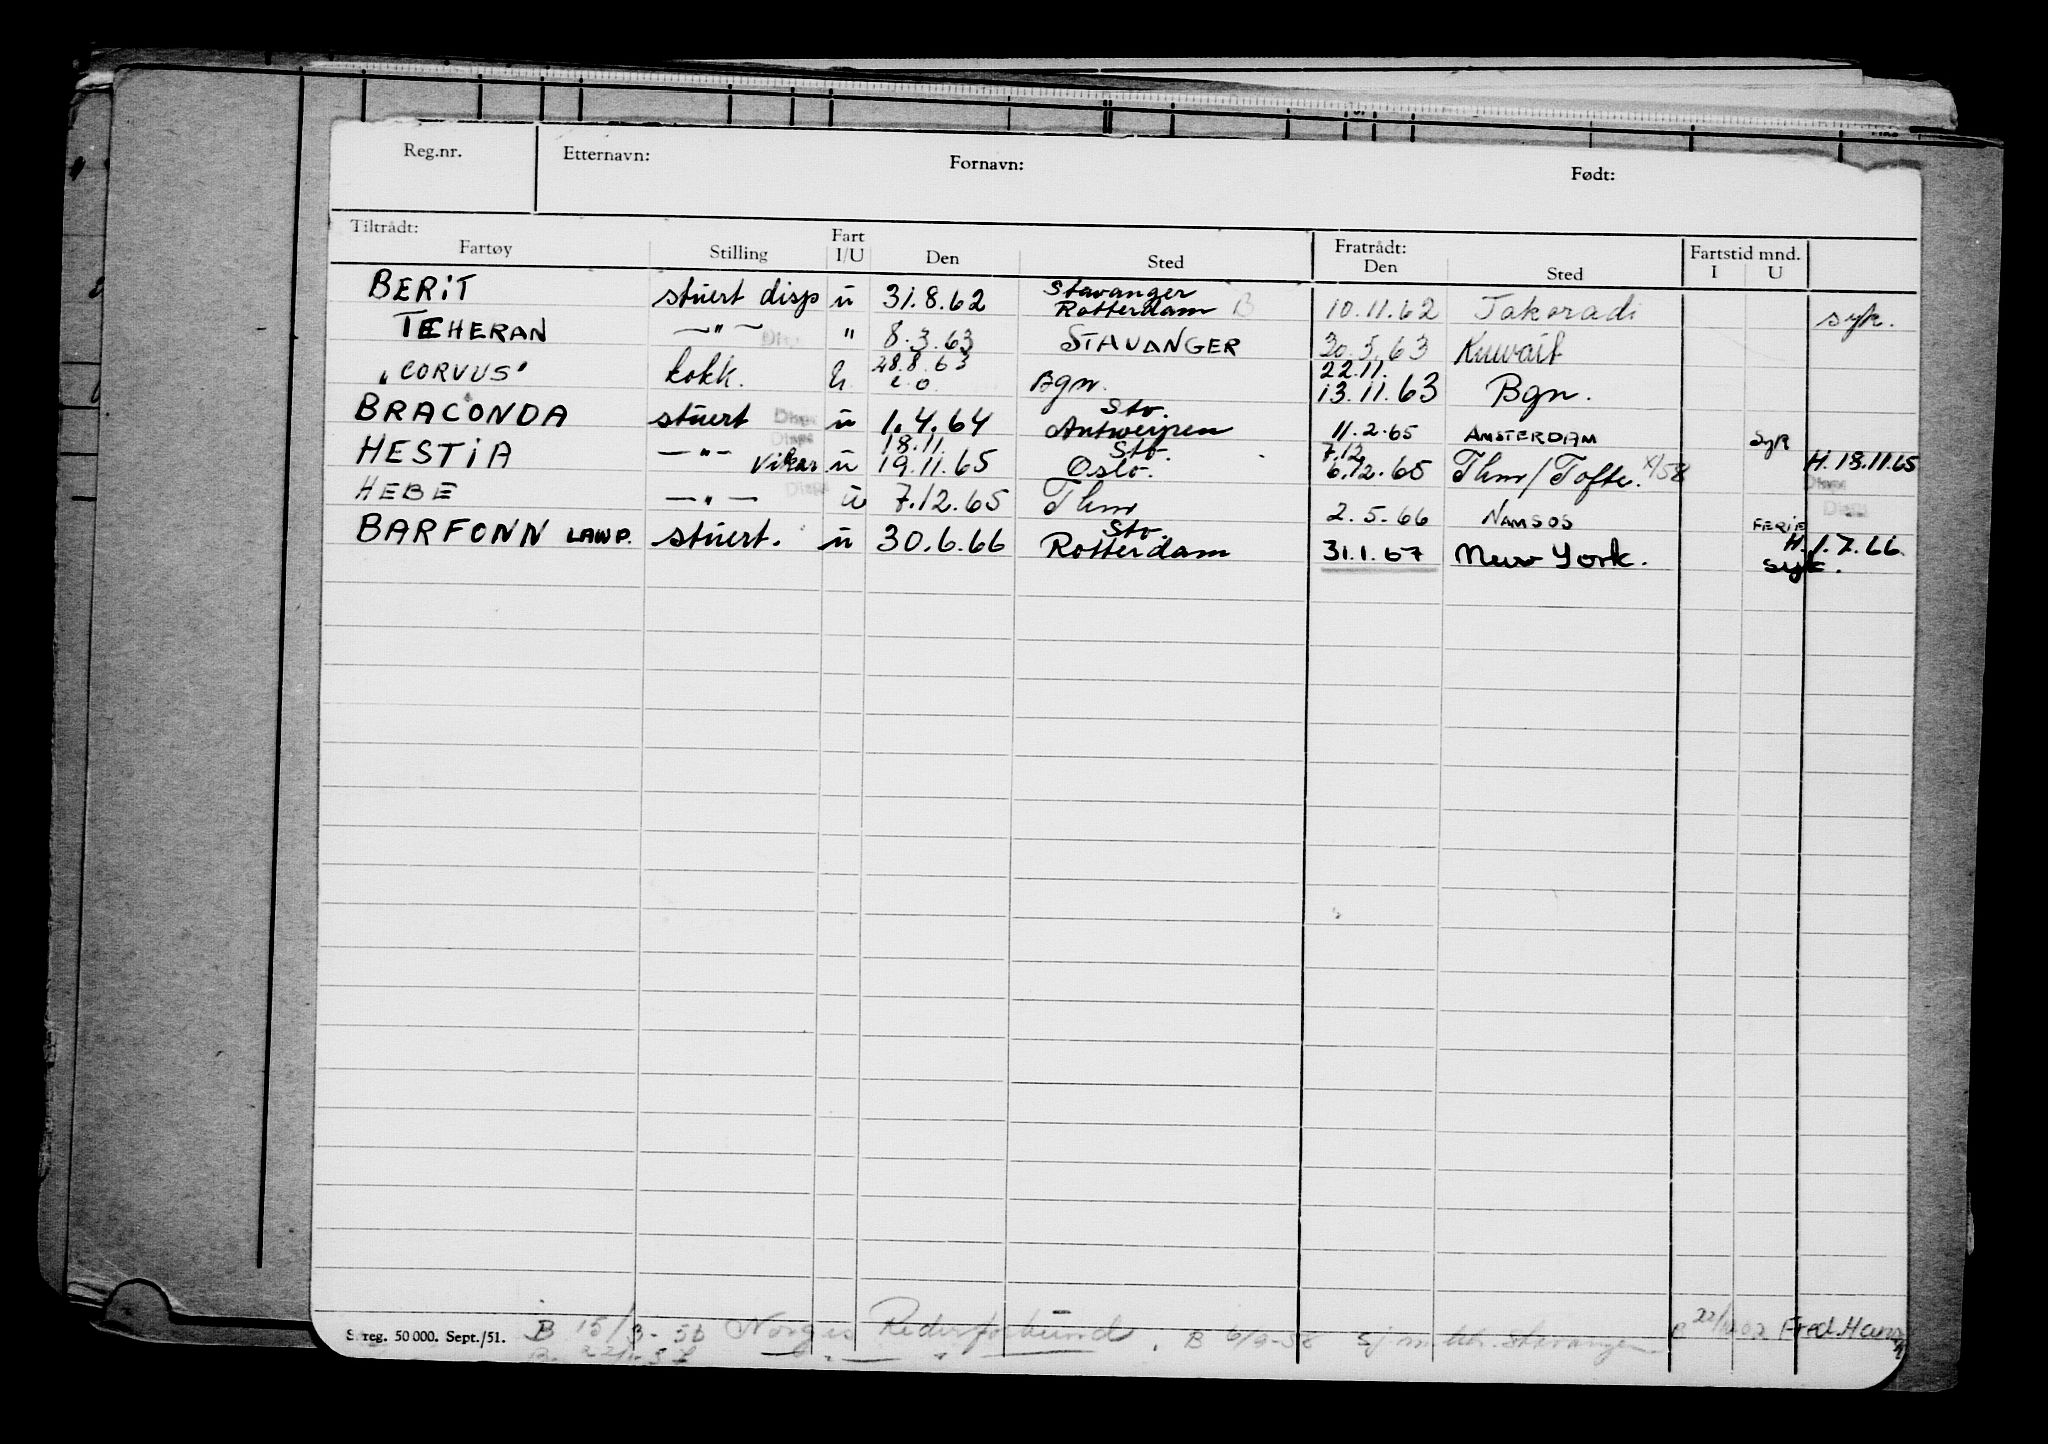 Reg.nr. Etternavn: Fornavn: Født:
Tiltrådt: Fart Fratrådt: Fartstid mnd.
Fartøy Stilling I/U Den Sted Den Sted I U
BERIT stuert disp u 31.8.62 Stavanger Rotterdam B 10.11.62 Takoradi syk.
TEHERAN —"— Disp " 8.3.63 STAVANGER 30.5.63 Kuwait
"CORVUS" kokk. u. 28.8.63 Bgn. 22.11. 13.11.63 Bgn.
BRACONDA stuert Disps u 1.4.64 Stv. Antwerpen 11.2.65 AMSTERDAM SYK
HESTIA —"— vikar Disps u 18.11. 19.11.65 Stv. Oslo. 7.12 6.12.65 Thm/Tofte. X/58 H. 18.11.65
HEBE —"— Disps u 7.12.65 Thm 2.5.66 NAMSOS FERIE Disps
BARFONN LAWP. stuert. u 30.6.66 Stv. Rotterdam 31.1.67 New York. H. 1.7.66 syk.
S. reg. 50 000. Sept./51. B 15/3-56 Norges Rederforbund. B 6/9-58 sjm. ktr. Stavanger Fred. Hans